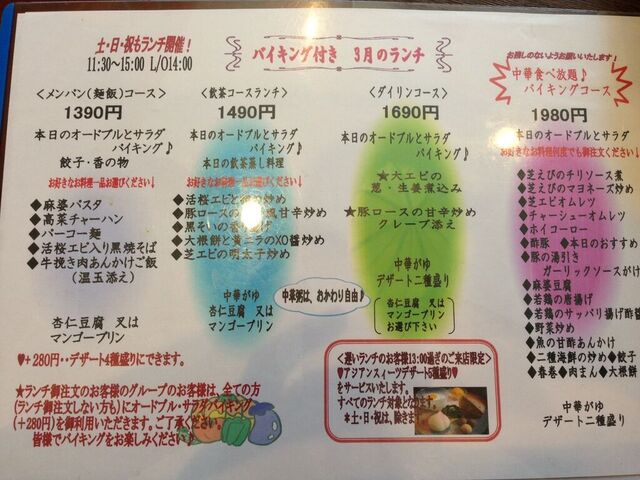 土・日・祝もランチ開催！
11:30～15:00 L/O14:00
バイキング付き 3月のランチ
お残しのないようお願いいたします！
中華食べ放題♪
バイキングコース
＜メンバン（麺飯）コース＞
1390円
本日のオードブルとサラダ
バイキング♪
餃子・香の物
お好きなお料理一品お選びください↓
◆麻婆パスタ
◆高菜チャーハン
◆バーコー麺
◆活桜エビ入り黒焼そば
◆牛挽き肉あんかけご飯
（温玉添え）
杏仁豆腐 又は
マンゴープリン
＜飲茶コースランチ＞
1490円
本日のオードブルとサラダ
バイキング♪
本日の飲茶蒸し料理
お好きなお料理一品お選びください↓
◆活桜エビと
炒め
◆豚ロースの
甘辛炒め
◆黒そいの
◆大根餅と黄ニラのXO醤炒め
◆芝エビの明太子炒め
中華がゆ
杏仁豆腐 又は
マンゴープリン
＜ダイリンコース＞
1690円
本日のオードブルとサラダ
バイキング♪
★大エビの
葱・生姜煮込み
★豚ロースの甘辛炒め
クレープ添え
中華がゆ
デザート二種盛り
杏仁豆腐 又は
マンゴープリン
お選び下さい
中菜粥は、おかわり自由♪
1980円
本日のオードブルとサラダ
お好きなお料理何度でも御注文ください↓
◆芝えびのチリソース煮
◆芝えびのマヨネーズ炒め
◆芝エビオムレツ
◆チャーシューオムレツ
◆ホイコーロー
◆酢豚 ◆本日のおすすめ
◆豚の湯引き
ガーリックソースがけ
◆麻婆豆腐
◆若鶏の唐揚げ
◆若鶏のサッパリ揚げ酢
◆野菜炒め
◆魚の甘酢あんかけ
◆二種海鮮の炒め◆餃子
◆春巻◆肉まん◆大根餅
中華がゆ
デザート二種盛り
♥+280円・・デザート4種盛りにできます。
★ランチ御注文のお客様のグループのお客様は、全ての方
（ランチ御注文しない方も）にオードブル・サラダバイキング
（+280円）を御利用いただきます。ご了承ください。
皆様でバイキングをお楽しみください♪
＜遅いランチのお客様13:00過ぎのご来店限定＞
♥アジアンスィーツデザート5種盛り♥
をサービスいたします。
すべてのランチ対象となります。
＊土・日・祝は、除きます